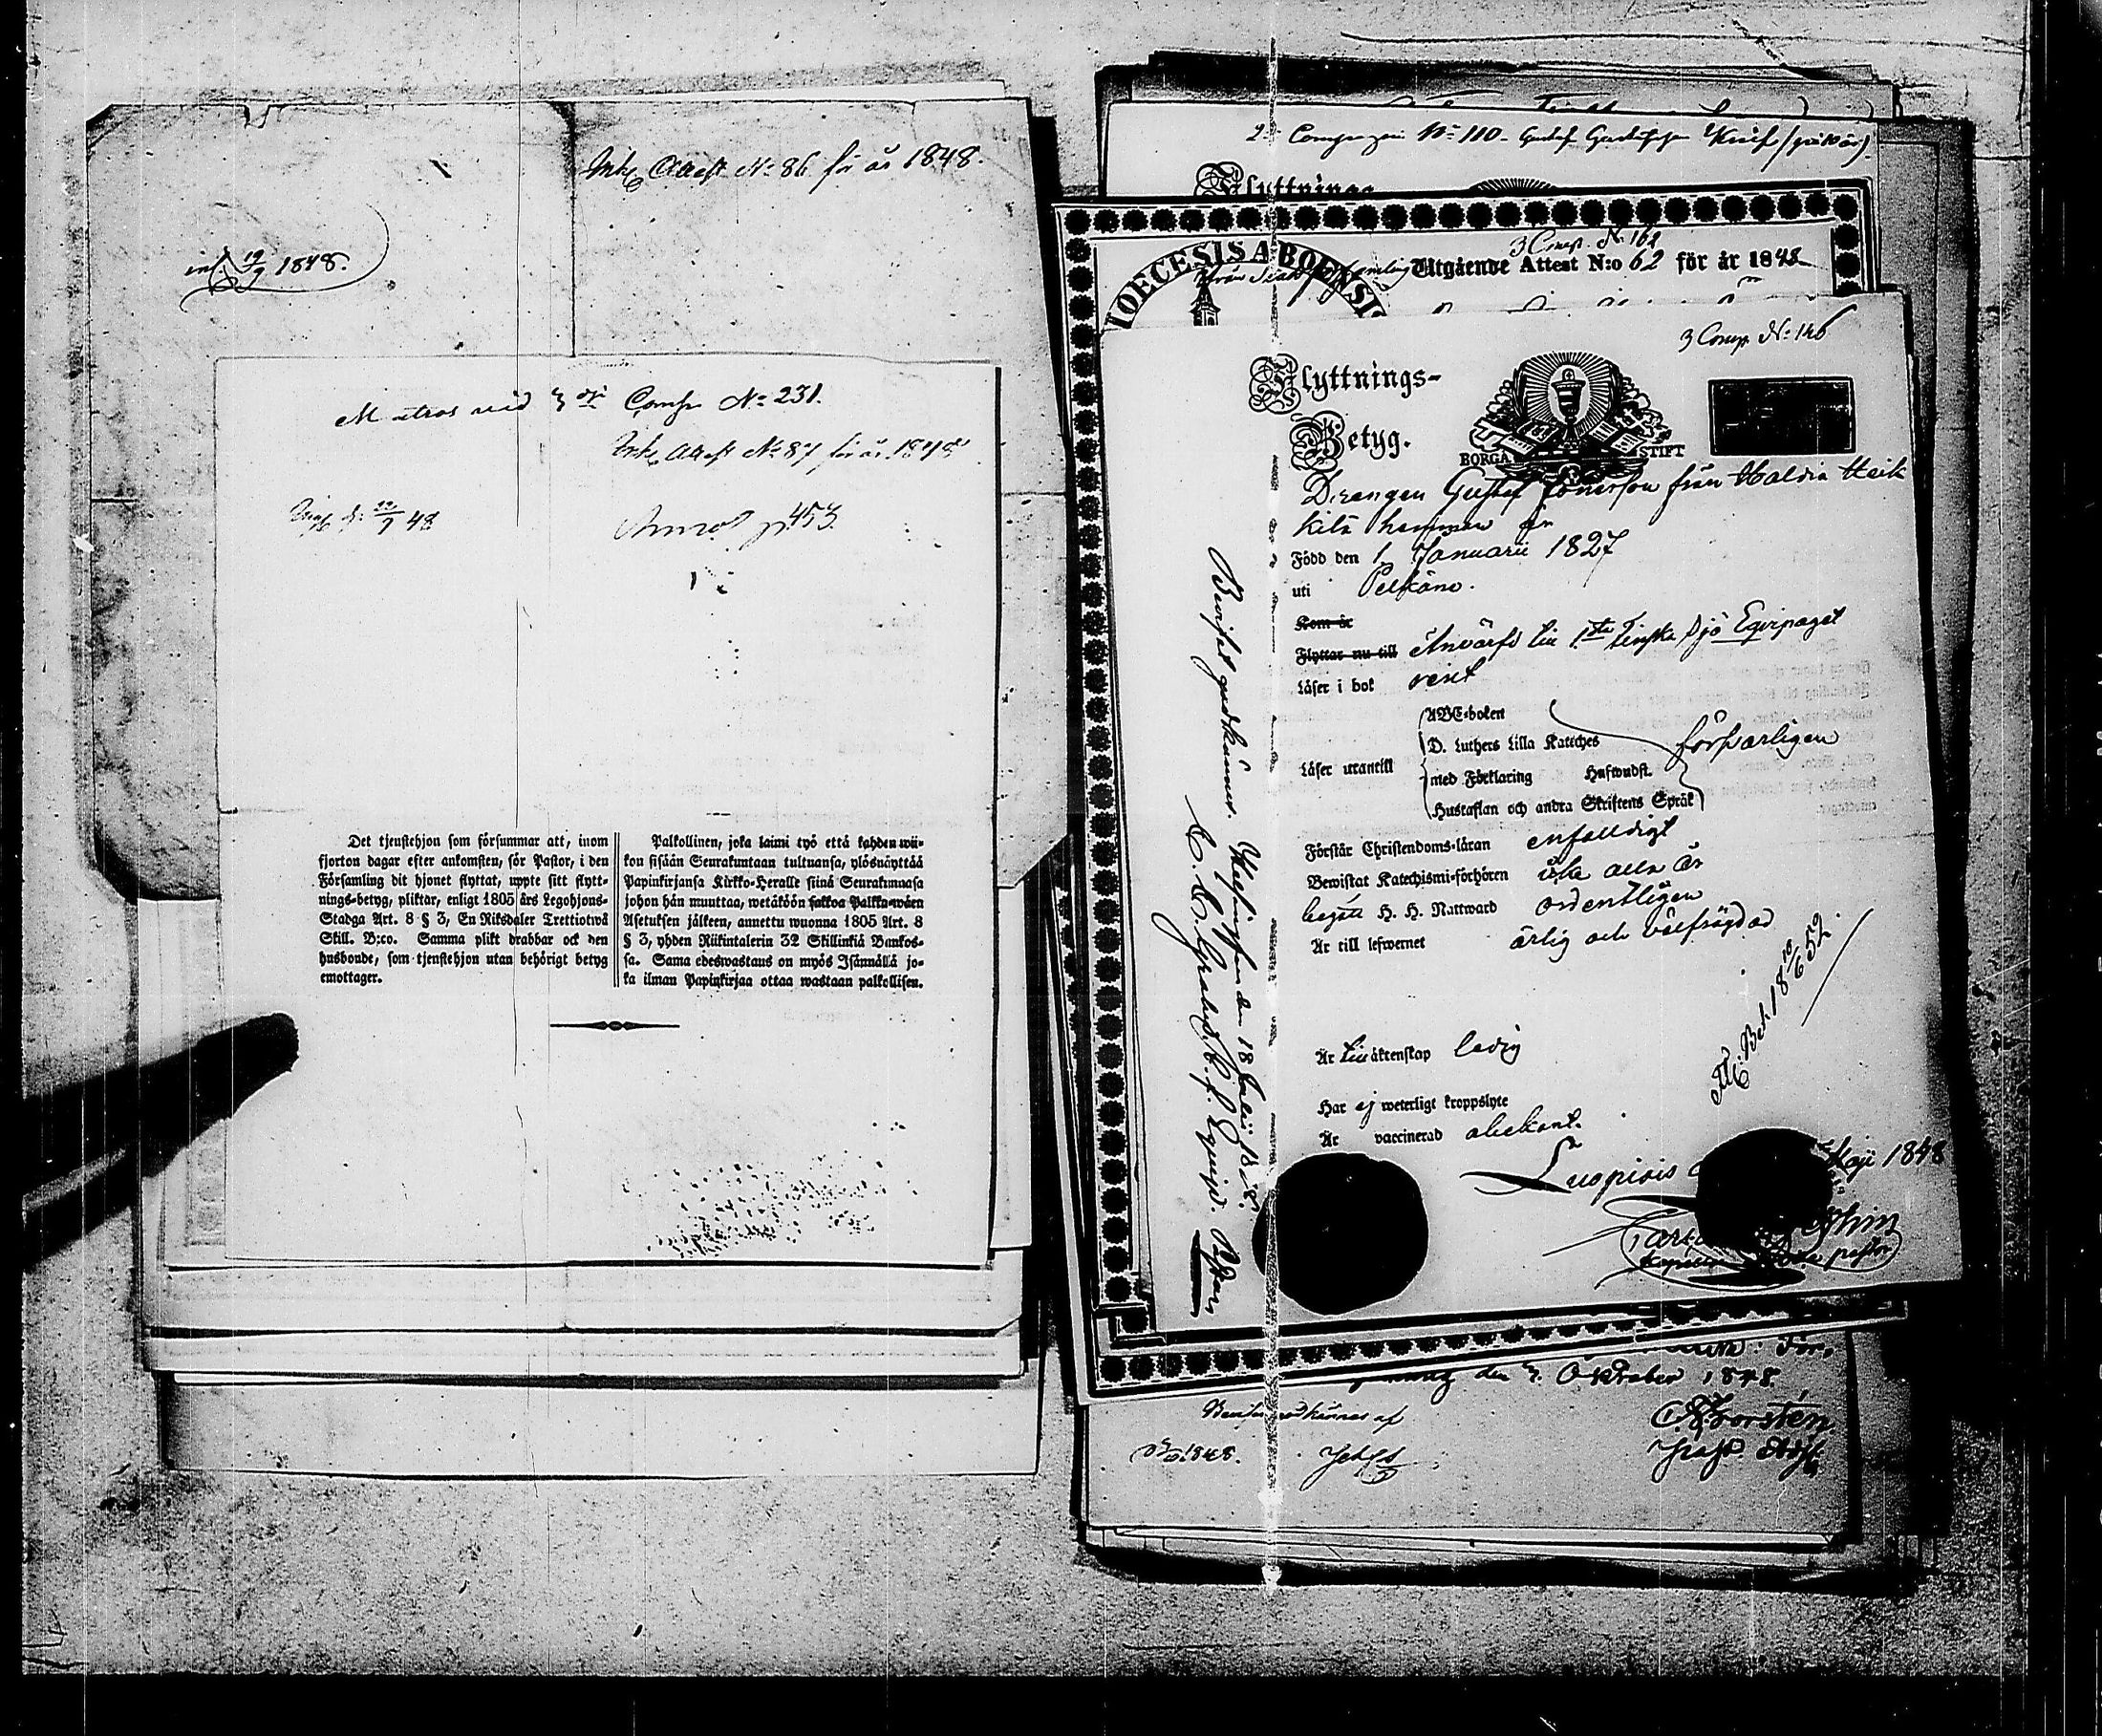 Ink. Attest No 86 för år 1848.
inf. 19/9 1848.
Matros vid 3dje Comp. No 231.
Ink. Attest No 87 för år 1848
48
Annot. p. 453.
Det tjenstehjon som försummar att, inom
fjorton dagar efter ankomsten, för Pastor, i den
Församling dit hjonet flyttat, uppte sitt flytt-
nings-betyg, pliktar, enligt 1805 års Legohjons-
Stadga Art. 8 § 3, En Riksdaler Trettiotwå
Skill. B:co. Samma plikt drabbar ock den
husbonde, som tjenstehjon utan behörigt betyg
emottager.
Palkollinen, joka laimi tyó että kahden wii-
kon sisään Seurakuntaan tultuansa, ylösnäyttää
Papinkirjansa Kirkko-Heralle siinä Seurakunnasa
johon hän muuttaa, wetäköön sakkoa Palkka-wäen
Asetuksen jälkeen, annettu wuonna 1805 Art. 8
§ 3, yhden Riikintalerin 32 Skillinkiä Bankos-
sa. Sama edeswastaus on myös Isännällä jo-
ka ilman Papinkirjaa ottaa wastaan palkollisen.
Compagni No 110 Gustaf
Flyttnings
3 Comp. No 162
DIOECESIS ABOENSIS
Utgående Attest N:o 62 för år 1848
3 Comp. No 146
Flyttnings-
Betyg.
BORGÅ STIFT
Drengen Gustaf från
hemman är
Född den 1 Januarii 1827
uti Pelkäne.
Kom år
Flyttar nu till Anvärfd till 1sta Finska Sjö Eqvipaget
Läser i bok rent
Läser utantill
ABC-boken
D. Luthers Lilla Kateches
med Förklaring Hufwudst.
Hustaflan och andra Skriftens Språk
försvarligen
Förstår Christendoms-läran enfaldigt
Bewistat Katechismi-förhören icke alla år
begått H. H. Nattward ordentligen
Är till lefwernet ärlig och välfrägdad
Är till äktenskap ledig
Har ej weterligt kroppslyte
Är vaccinerad obekant.
Luopiois Maji 1848
pastor
Betyget godkännes. Helsingfors den 18 Julii 1848.
den 7. Oktober 1848.
1848.